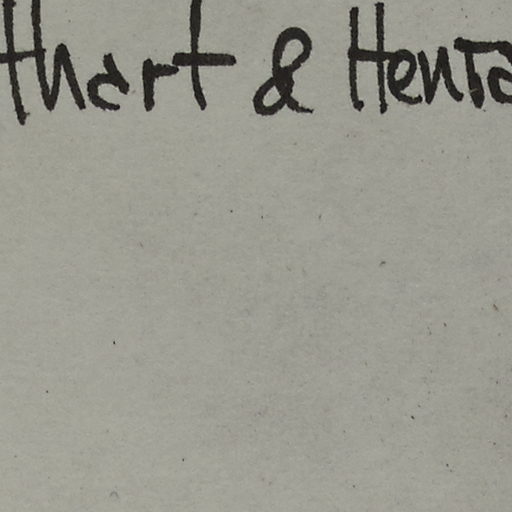 thart & Henta